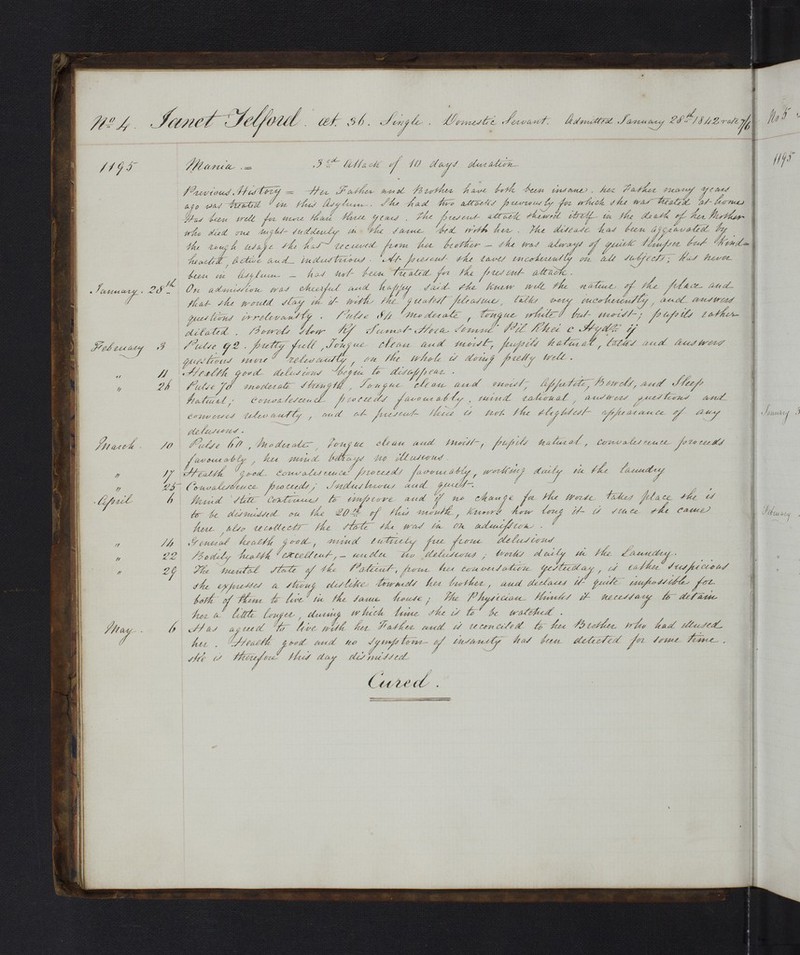 No 4. Janet Telford. aet. 36. Single. Domestic Servant. Admitted January 28th 1842 rate 7/6
1195 Mania.= 3rd Attack of 10 days duration
Previous History = Her Father and Brother have both been insane. her Father many years
ago was treated in this Asylum. She had two attacks previously for which she was treated at home
Has been well for more than three years. The present attack shewed itself in the death of her Mother
who died one night suddenly in the same bed with her. The disease has been aggravated by
the rough usage she has received from her brother – she was always of quick temper but Kind-
hearted, active and industrious. At present she raves incoherently on all subjects. Has never
been in Asylum. – has not been treated for the present attack.
January. 28th On admission was cheerful and happy said she knew well the nature of the place and
that she would stay in it with the greatest pleasure, talks very incoherently, and answers
questions irrelevantly. Pulse 84 moderate, tongue white but moist; pupils rather
dilated. Bowels slow Pil Rhei c Hydr ij
February 3 Pulse 92. pretty full, Tongue clean and moist, pupils natural, and answers
questions more relevantly, on the whole is doing pretty well.
" 11 Health good delusions begin to disappear.
" 26 Pulse 70 moderate strength. Tongue clean and moist, Appetite, Bowels, and Sleep
Natural; convalescence proceeds favourably, mind rational, answers questions and
converses relevantly, and at present there is not the slightest appearance of any
delusions.
March. 10 Pulse 60, Moderate, Tongue clean and moist, pupils natural, convalescence proceeds
favourably, her mind betrays no illusions.
" 17 Health good convalescence proceeds favourably, working daily in the laundry
" 25 Convalescence proceeds; Industrious and quiet.
April 6 Mind still continues to improve and if no change for the worse takes place she is
to be dismissed on the 20th of this month, knows how long it is since she came
here, also recollects the state she was in on admission.
" 14 General health good, mind entirely free from delusions
" 22 Bodily health excellent, – under no delusions, works daily in the Laundry.
" 29 The mental state of the Patient, from her conversation yesterday, is rather suspicious
she expresses a strong dislike towards her brother, and declares it quite impossible for
both of them to live in the same house; The Physician thinks it necessary to detain
her a little longer, during which time she is to be watched.
May. 6 Has agreed to live with her Father and is reconciled to her Brother who had illused
her. Health good and no symptom of insanity has been detected for some time.
She is therefore this day dismissed
Cured.
No 5
1195
January
February